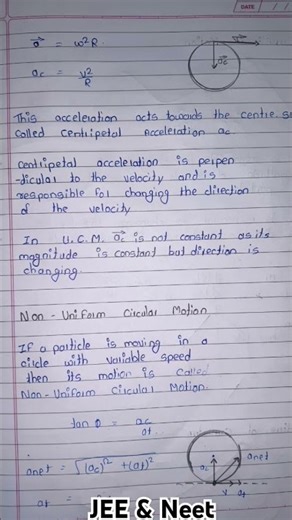 DATE
a⃗ = ω²R
ac = v²/R
This acceleration acts towards the centre. s
called Centripetal Acceleration ac
Centripetal acceleration is perpen
-dicular to the velocity and is
responsible for changing the direction
of the velocity
In U.C.M. a⃗c is not constant as its
magnitude is constant but direction is
changing
Non - Uniform Circular Motion
If a particle is moving in a
circle with variable speed
then its motion is called
Non-Uniform Circular Motion.
tan θ = ac/at
anet = √(ac)² + (at)²
ac anet
at =
v at
JEE & Neet